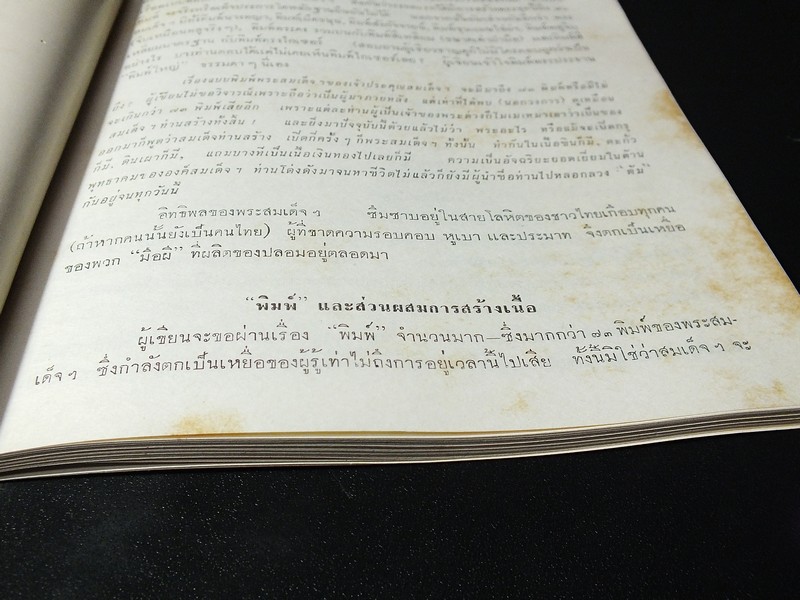 "พิมพ์ใหญ่" ธรรมดา ๆ นี่เอง
เรื่องแบบพิมพ์พระสมเด็จ ฯ ของเจ้าประคุณสมเด็จ ฯ จะมีมาถึง ๗๓ พิมพ์หรือไม่
ถึง ? ผู้เขียนไม่ขอวิจารณ์เพราะถือว่าเป็นผู้มาภายหลัง แต่เท่าที่ได้พบ (นอกวงการ) ดูเหมือน
จะเกินกว่า ๗๓ พิมพ์เสียอีก เพราะแต่ละท่านผู้เป็นเจ้าของพระต่างก็ไม่เมคเมาเอาว่าเป็นของ
สมเด็จ ฯ ท่านสร้างทั้งสิ้น ! และยิ่งมาปัจจุบันนี้ด้วยแล้วไม่ว่า พระอะไร หรือแม้จะเปิดกรุ
ออกมาก็พูดว่าสมเด็จท่านสร้าง เปิดกี่ครั้ง ๆ ก็พระสมเด็จ ฯ ทั้งนั้น ดำกันในเนื้อชินก็มี, ตะกั่ว
ก็มี, ดินเผาก็มี, แถมบางทีเป็นเนื้อเงินทองไปเลยก็มี ความเป็นอัจฉริยะยอดเยี่ยมในด้าน
พุทธาคมขององค์สมเด็จ ฯ ท่านโด่งดังมาจนหาชีวิตไม่แล้วก็ยังมีผู้นำชื่อท่านไปหลอกลวง "ต้ม"
กันอยู่จนทุกวันนี้
อิทธิพลของพระสมเด็จ ฯ ซึมซาบอยู่ในสายโลหิตของชาวไทยเกือบทุกคน
(ถ้าหากคนนั้นยังเป็นคนไทย) ผู้ที่ขาดความรอบคอบ หูเบา และประมาท จึงตกเป็นเหยื่อ
ของพวก "มือผี" ที่ผลิตของปลอมอยู่ตลอดมา
"พิมพ์" และส่วนผสมการสร้างเนื้อ
ผู้เขียนจะขอผ่านเรื่อง "พิมพ์" จำนวนมาก—ซึ่งมากกว่า ๗๓ พิมพ์ของพระสม-
เด็จ ฯ ซึ่งกำลังตกเป็นเหยื่อของผู้รู้เท่าไม่ถึงการอยู่เวลานี้ไปเสีย ทั้งนี้มิใช่ว่าสมเด็จ ฯ จะ